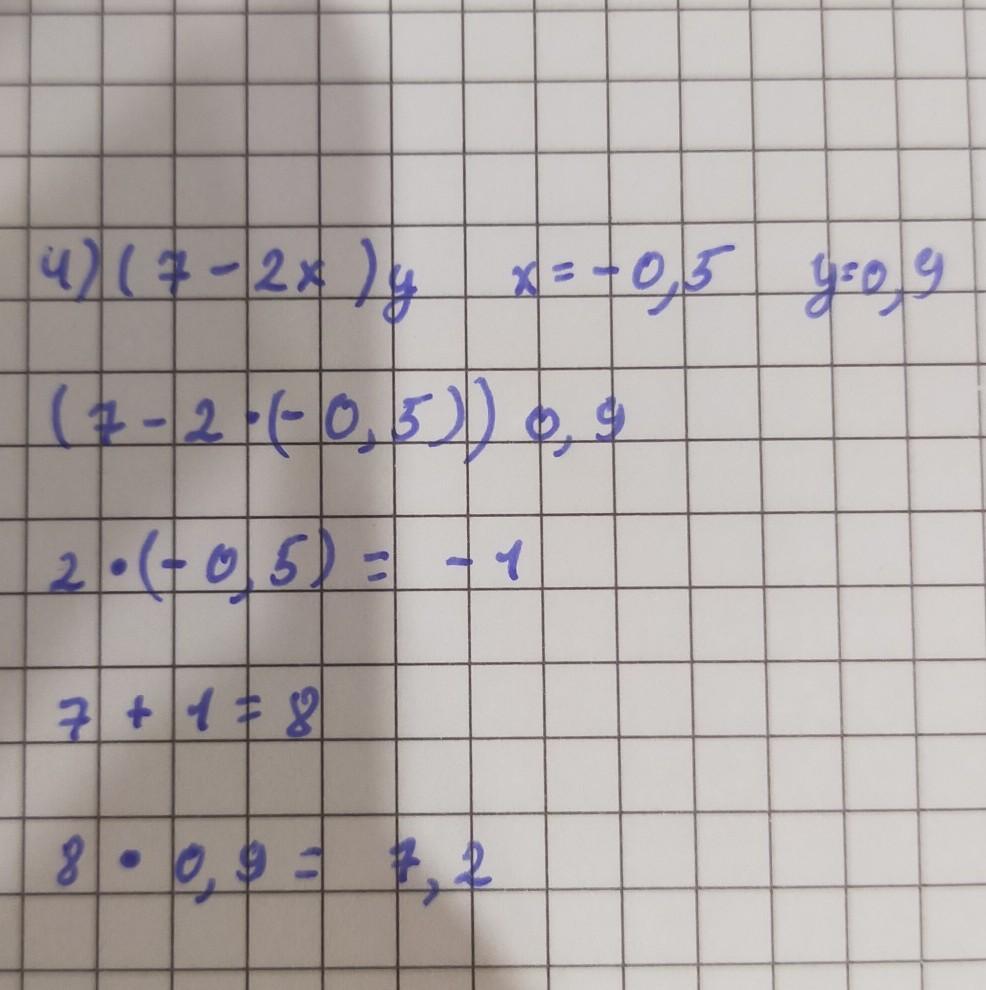 4) (7 - 2x) y x = -0,5 y=0,9
(7 - 2 · (-0,5)) 0,9
2 · (-0,5) = -1
7 + 1 = 8
8 · 0,9 = 7,2